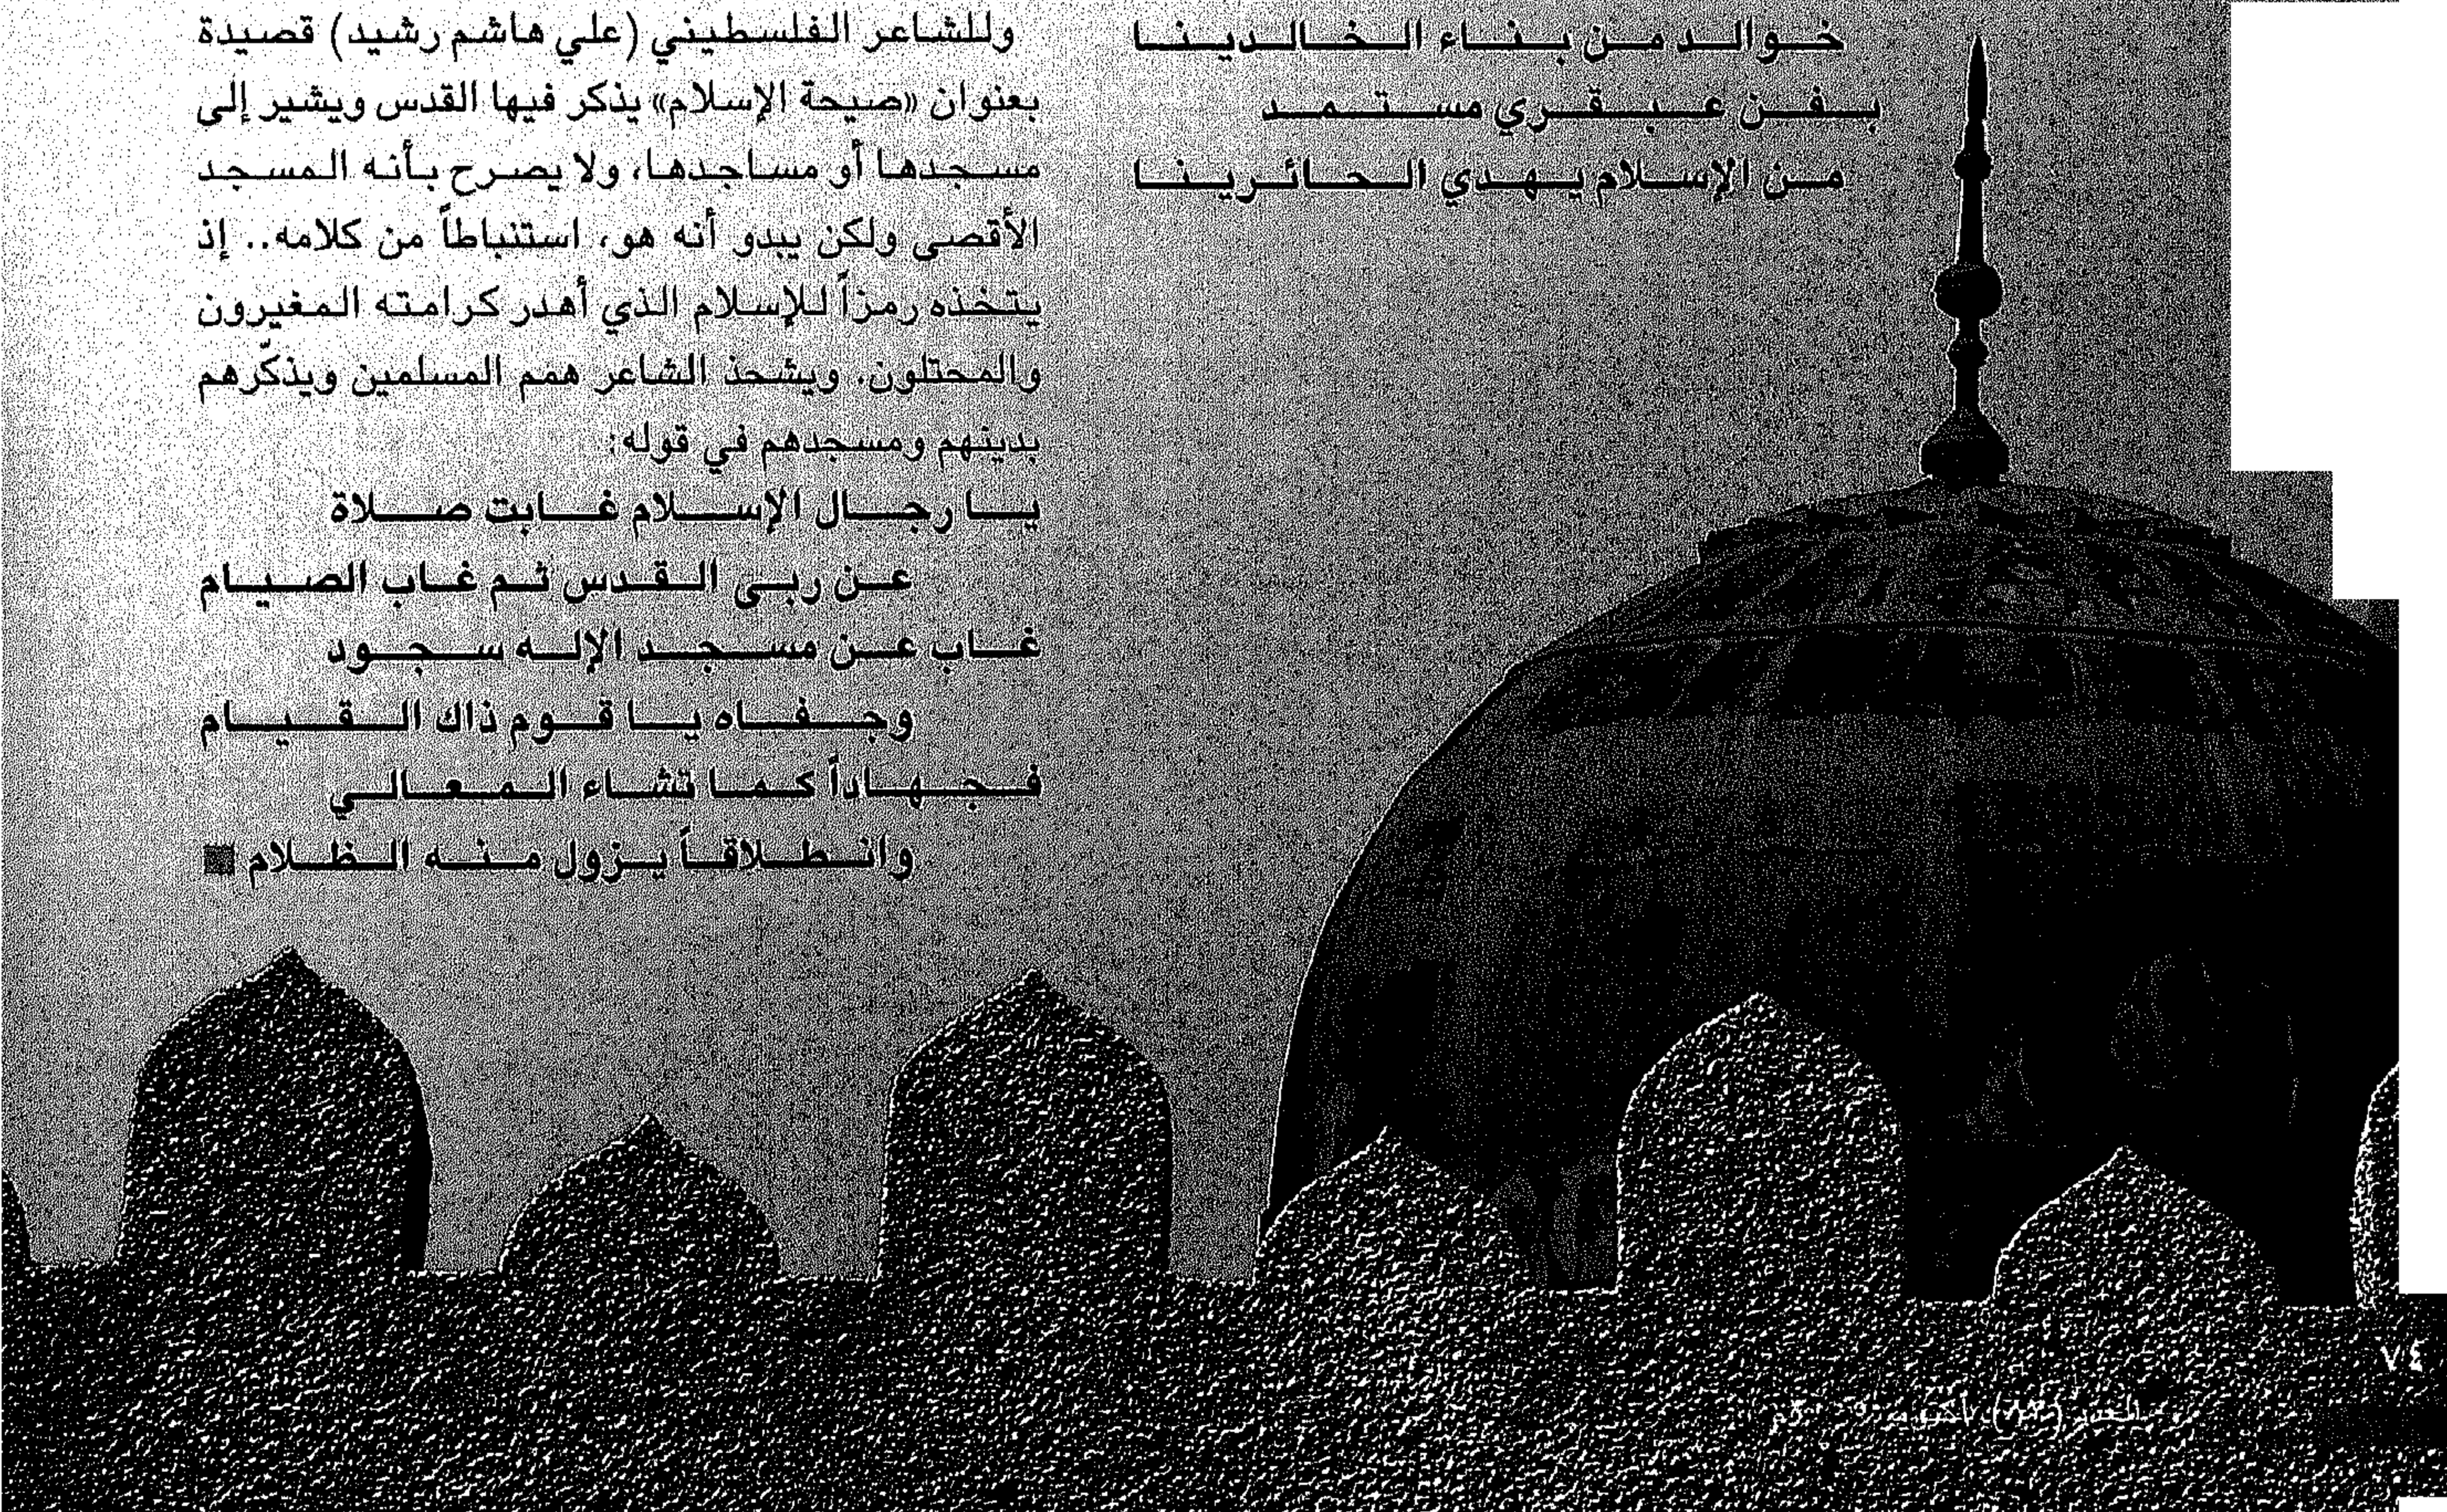 خوالد من بناء الخالدينا
بفن عبقري مستمد
من الإسلام يهدي الحائرينا
وللشاعر الفلسطيني (علي هاشم رشيد) قصيدة
بعنوان «صيحة الإسلام» يذكر فيها القدس ويشير إلى
مسجدها أو مساجدها، ولا يصرح بأنه المسجد
الأقصى ولكن يبدو أنه هو، استنباطاً من كلامه.. إذ
يتخذه رمزاً للإسلام الذي أهدر كرامته المغيرون
والمحتلون. ويشحذ الشاعر همم المسلمين ويذكّرهم
بدينهم ومسجدهم في قوله:
يا رجال الإسلام غابت صلاة
عن ربى القدس ثم غاب الصيام
غاب عن مسجد الإله سجود
وجفاه يا قوم ذاك القيام
فجهاداً كما تشاء المعالي
وانطلاقاً يزول منه الظلام
٧٤
العدد